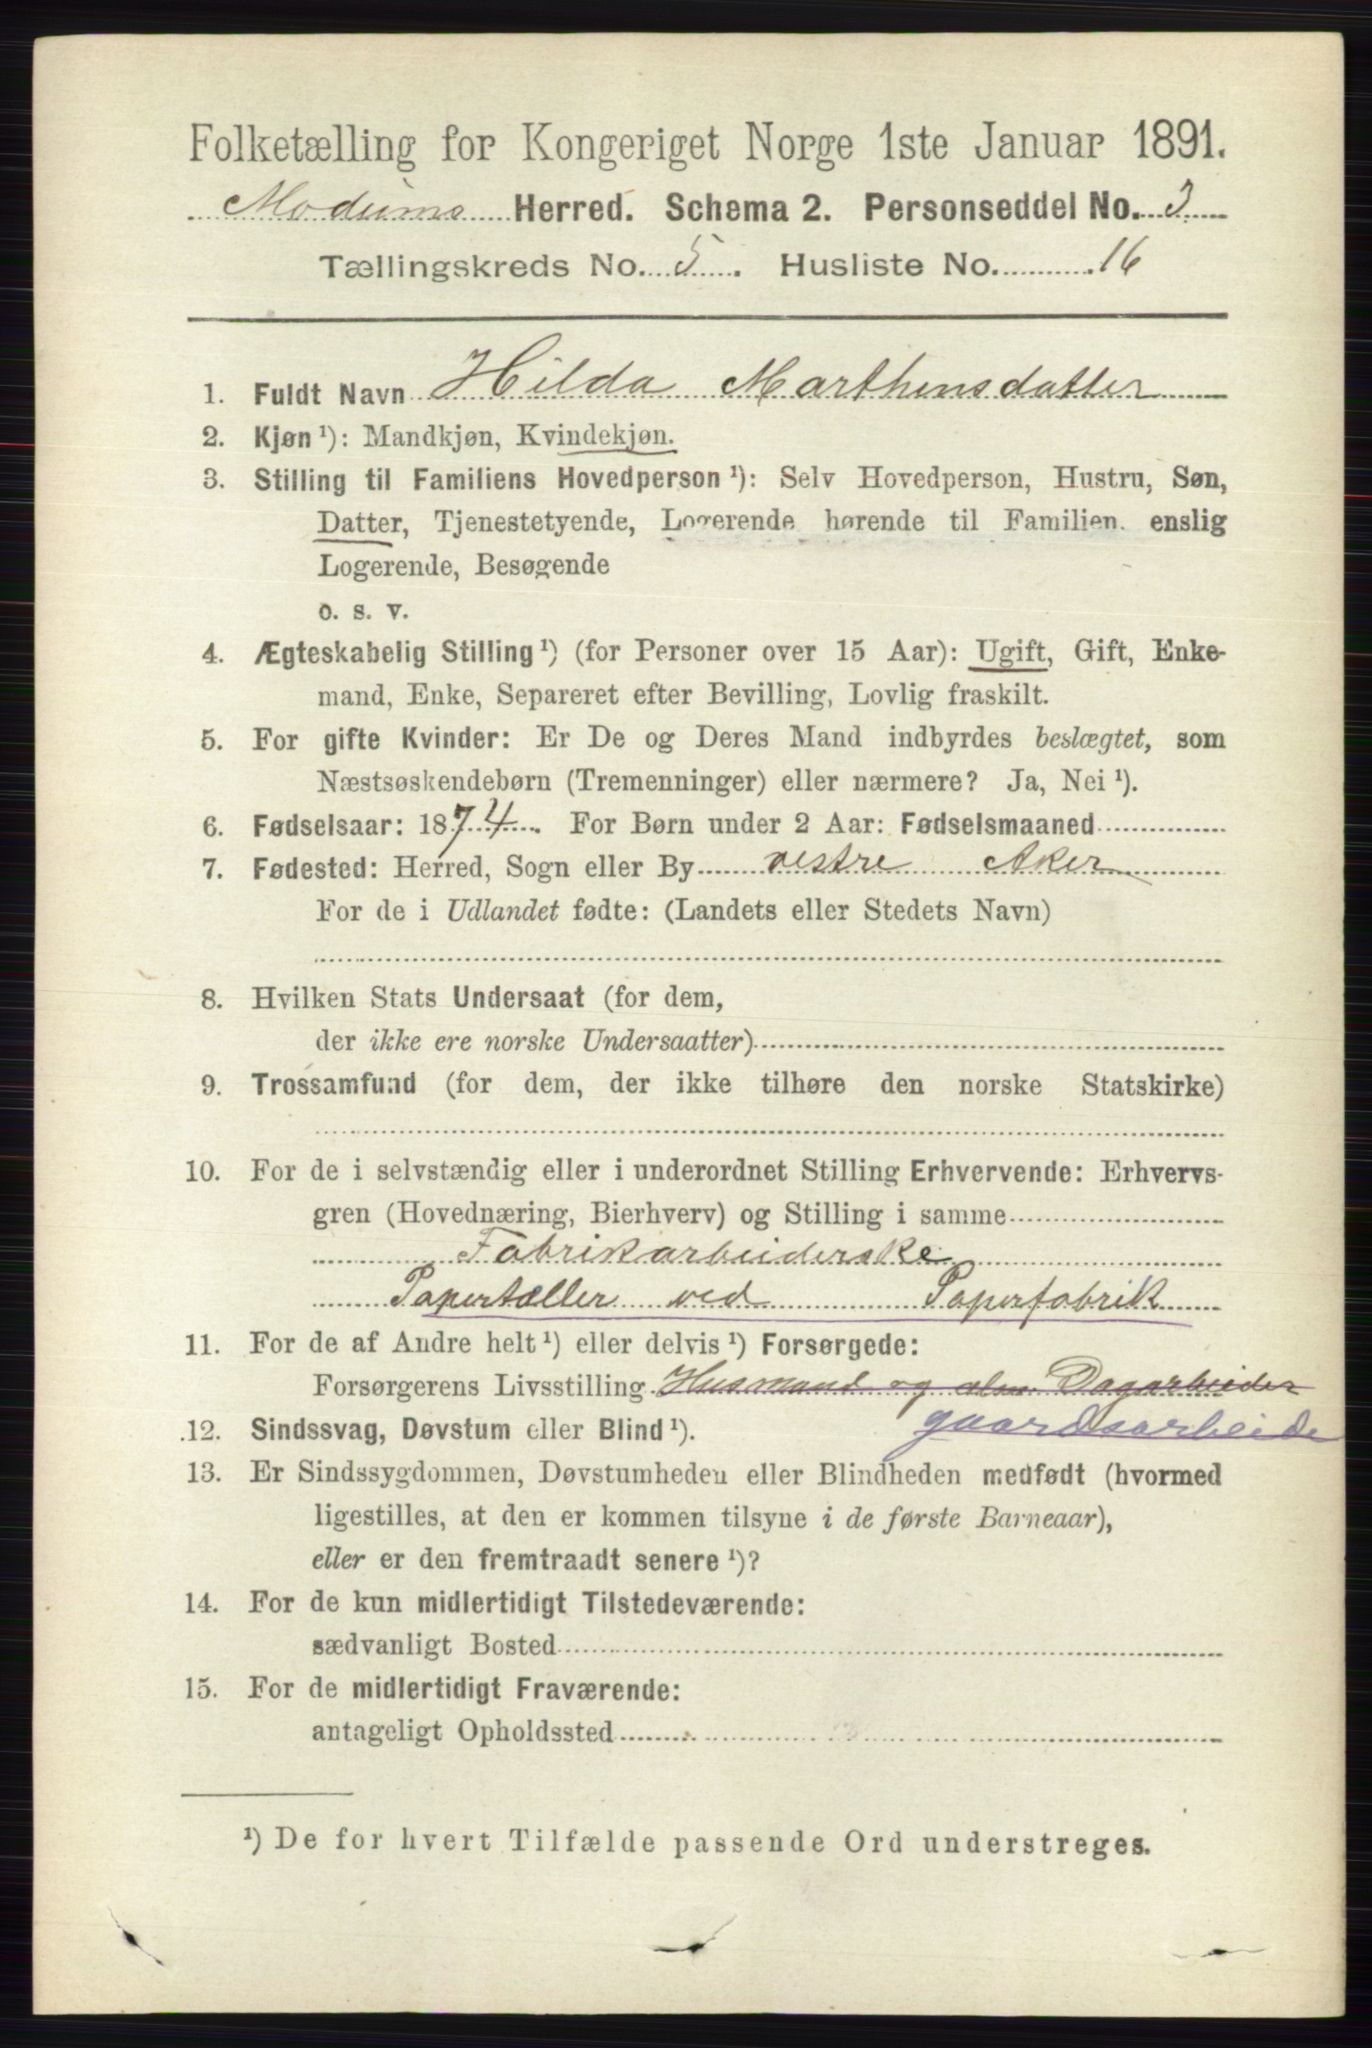 Folketælling for Kongeriget Norge 1ste Januar 1891.
Modums Herred. Schema 2. Personseddel No. 3
Tællingskreds No. 5. Husliste No. 16
1. Fuldt Navn Hilda Marthinsdatter
2. Kjøn ¹): Mandkjøn, Kvindekjøn.
3. Stilling til Familiens Hovedperson ¹): Selv Hovedperson, Hustru, Søn,
Datter, Tjenestetyende, Logerende hørende til Familien, enslig
Logerende, Besøgende
o. s. v.
4. Ægteskabelig Stilling ¹) (for Personer over 15 Aar): Ugift, Gift, Enke-
mand, Enke, Separeret efter Bevilling, Lovlig fraskilt.
5. For gifte Kvinder: Er De og Deres Mand indbyrdes beslægtet, som
Næstsøskendebørn (Tremenninger) eller nærmere? Ja, Nei ¹).
6. Fødselsaar: 1874. For Børn under 2 Aar: Fødselsmaaned
7. Fødested: Herred, Sogn eller By vestre Aker
For de i Udlandet fødte: (Landets eller Stedets Navn)
8. Hvilken Stats Undersaat (for dem,
der ikke ere norske Undersaatter)
9. Trossamfund (for dem, der ikke tilhøre den norske Statskirke)
10. For de i selvstændig eller i underordnet Stilling Erhvervende: Erhvervs-
gren (Hovednæring, Bierhverv) og Stilling i samme
Fabrikarbeiderske
Papertæller ved Paperfabrik
11. For de af Andre helt ¹) eller delvis ¹) Forsørgede:
Forsørgerens Livsstilling Husmand og alm. Dagarbeider
12. Sindssvag, Døvstum eller Blind ¹). gaardsarbeide
13. Er Sindssygdommen, Døvstumheden eller Blindheden medfødt (hvormed
ligestilles, at den er kommen tilsyne i de første Barneaar),
eller er den fremtraadt senere ¹)?
14. For de kun midlertidigt Tilstedeværende:
sædvanligt Bosted
15. For de midlertidigt Fraværende:
antageligt Opholdssted
¹) De for hvert Tilfælde passende Ord understreges.